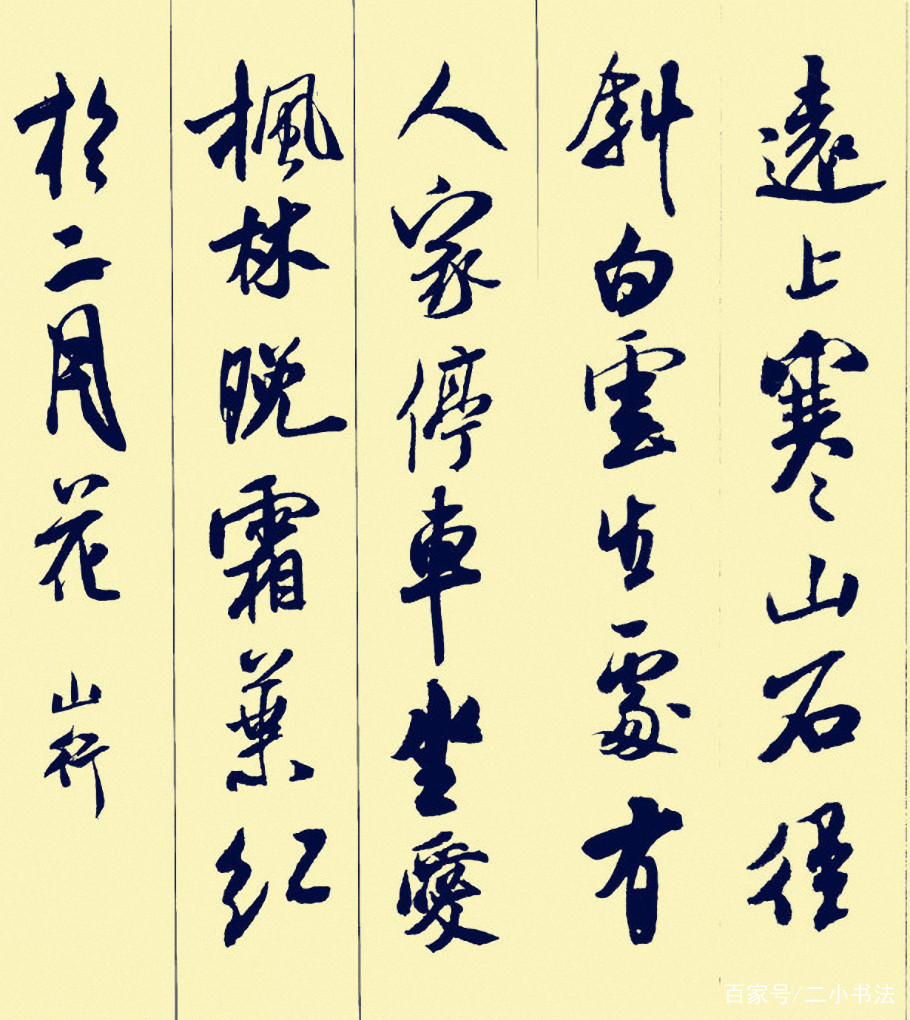 遠上寒山石徑
斜白雲生處有
人家停車坐愛
楓林晚霜葉紅
於二月花
山行
百家号/二小书法